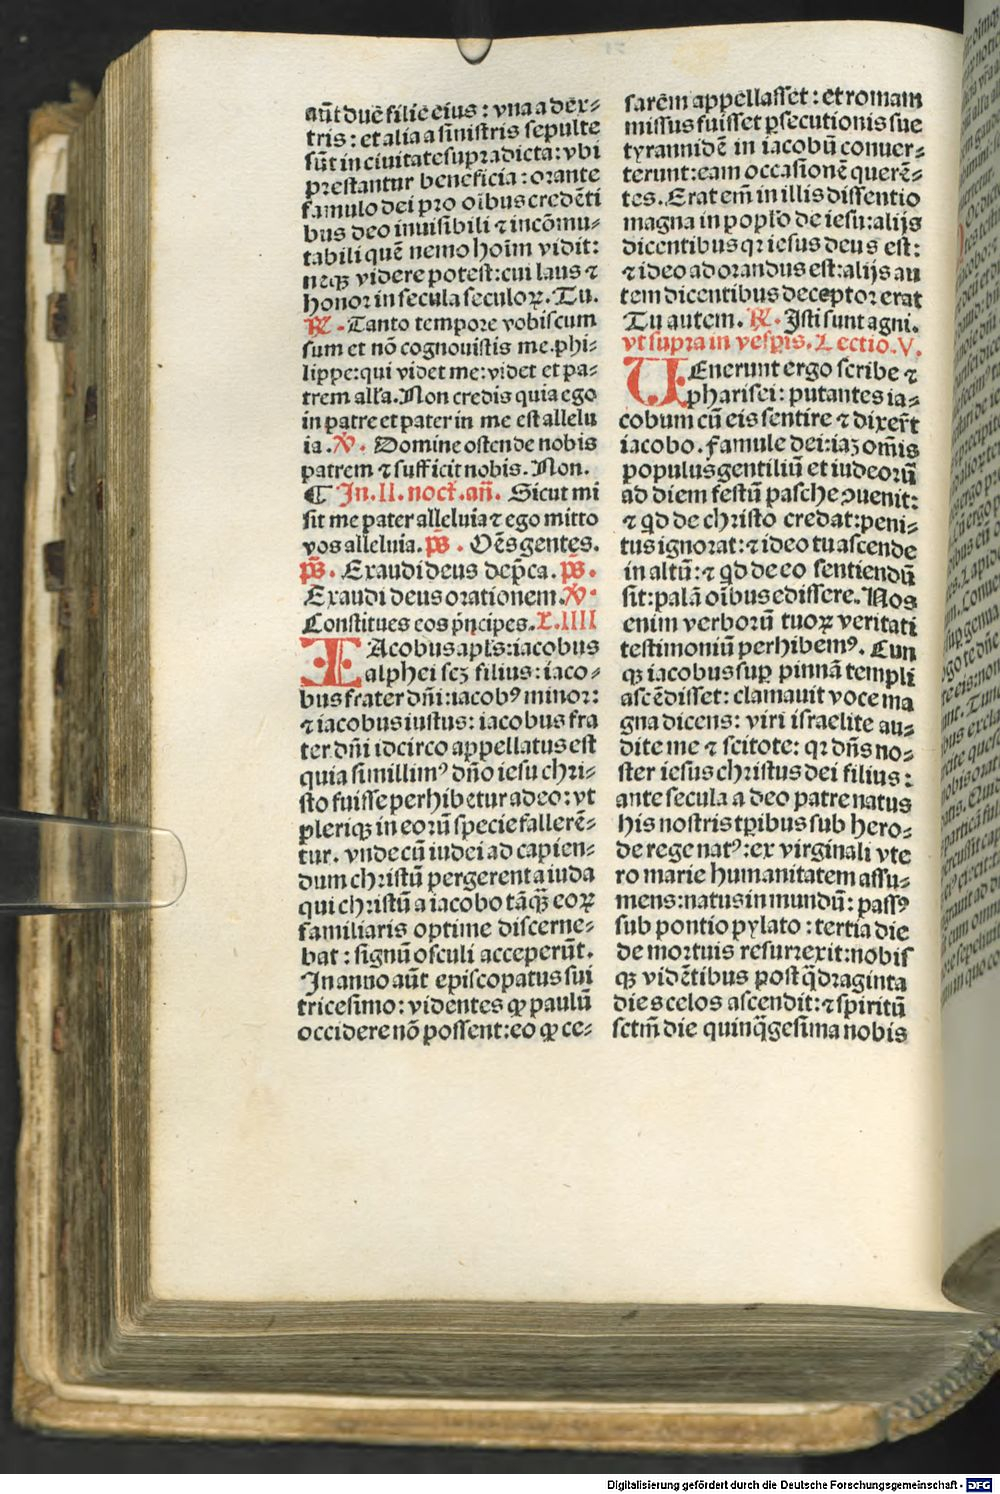 aūt due filie eius : vna a dex⸗
tris : et alia a sinistris sepulte
sūt in ciuitate supradicta : vbi
prestantur beneficia : orante
famulo dei pro oībus credēti
bus deo inuisibili ⁊ incōmu⸗
tabili quē nemo hoīm vidit :
neqꝫ videre potest : cui laus ⁊
honor in secula seculoꝝ. Tu.
℟. Tanto tempore vobiscum
sum et nō cognouistis me. phi⸗
lippe : qui videt me : videt et pa⸗
trem all'a. Non credis quia ego
in patre et pater in me est allelu
ia. ℣. Domine ostende nobis
patrem ⁊ sufficit nobis. Non.
¶ In. II. noct̄. añ. Sicut mi
sit me pater alleluia ⁊ ego mitto
vos alleluia. p̄s. Oēs gentes.
p̄s. Exaudi deus dep̄ca. p̄s.
Exaudi deus orationem. ℣.
Constitues eos pn̄cipes. L. IIII
IAcobus apl's : iacobus
alphei scꝫ filius : iaco⸗
bus frater dn̄i : iacobꝰ minor :
⁊ iacobus iustus : iacobus fra
ter dn̄i idcirco appellatus est
quia simillimꝰ dn̄o iesu chri⸗
sto fuisse perhibetur adeo : vt
pleriqꝫ in eorū specie fallerē⸗
tur. vnde cū iudei ad capien⸗
dum christū pergerent a iuda
qui christū a iacobo tāqꝫ eoꝝ
familiaris optime discerne⸗
bat : signū osculi acceperūt.
In anno aūt episcopatus sui
tricesimo : videntes ꝙ paulū
occidere nō possent : eo ꝙ ce⸗
sarēm appellasset : et romam
missus fuisset ꝑsecutionis sue
tyrannidē in iacobū conuer⸗
terunt : eam occasionē querē⸗
tes. Erat em̄ in illis dissentio
magna in poplo de iesu : alijs
dicentibus qr iesus deus est :
⁊ ideo adorandus est : alijs au
tem dicentibus deceptor erat
Tu autem. ℟. Isti sunt agni.
vt supra in vesꝑis. Lectio. V.
UEnerunt ergo scribe ⁊
pharisei : putantes ia⸗
cobum cū eis sentire ⁊ dixer̄t
iacobo. famule dei : iaꝫ om̄is
populus gentiliū et iudeorū
ad diem festū pasche ↄuenit :
⁊ qd de christo credat : peni⸗
tus ignorat : ⁊ ideo tu ascende
in altū : ⁊ qd de eo sentiendū
sit : palā oībus edissere. Nos
enim verborū tuoꝝ veritati
testimoniū perhibemꝰ. Cun
qꝫ iacobus suꝑ pinnā templi
ascēdisset : clamauit voce ma
gna dicens : viri israelite au⸗
dite me ⁊ scitote : qr dn̄s no⸗
ster iesus christus dei filius :
ante secula a deo patre natus
his nostris tꝑibus sub hero⸗
de rege natꝰ : ex virginali vte
ro marie humanitatem assu⸗
mens : natus in mundū : passꝰ
sub pontio pylato : tertia die
de mortuis resurrexit : nobis
qꝫ vidētibus post q̄draginta
dies celos ascendit : ⁊ spiritū
sctm̄ die quinq̄gesima nobis
Digitalisierung gefördert durch die Deutsche Forschungsgemeinschaft - DFG